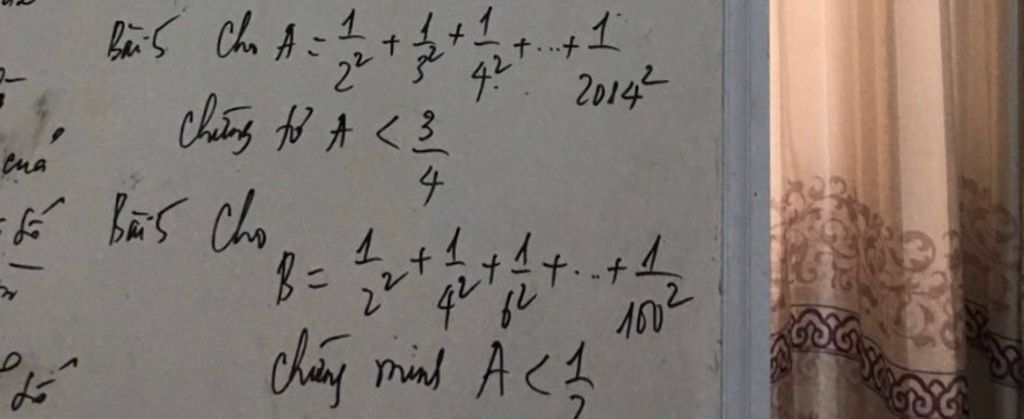 Bài 5 Cho A = 1/2² + 1/3² + 1/4² + ... + 1/2014²
Chứng tỏ A < 3/4
của
số
Bài 5 Cho
B = 1/2² + 1/4² + 1/6² + ... + 1/100²
Chứng minh A < 1/2
số